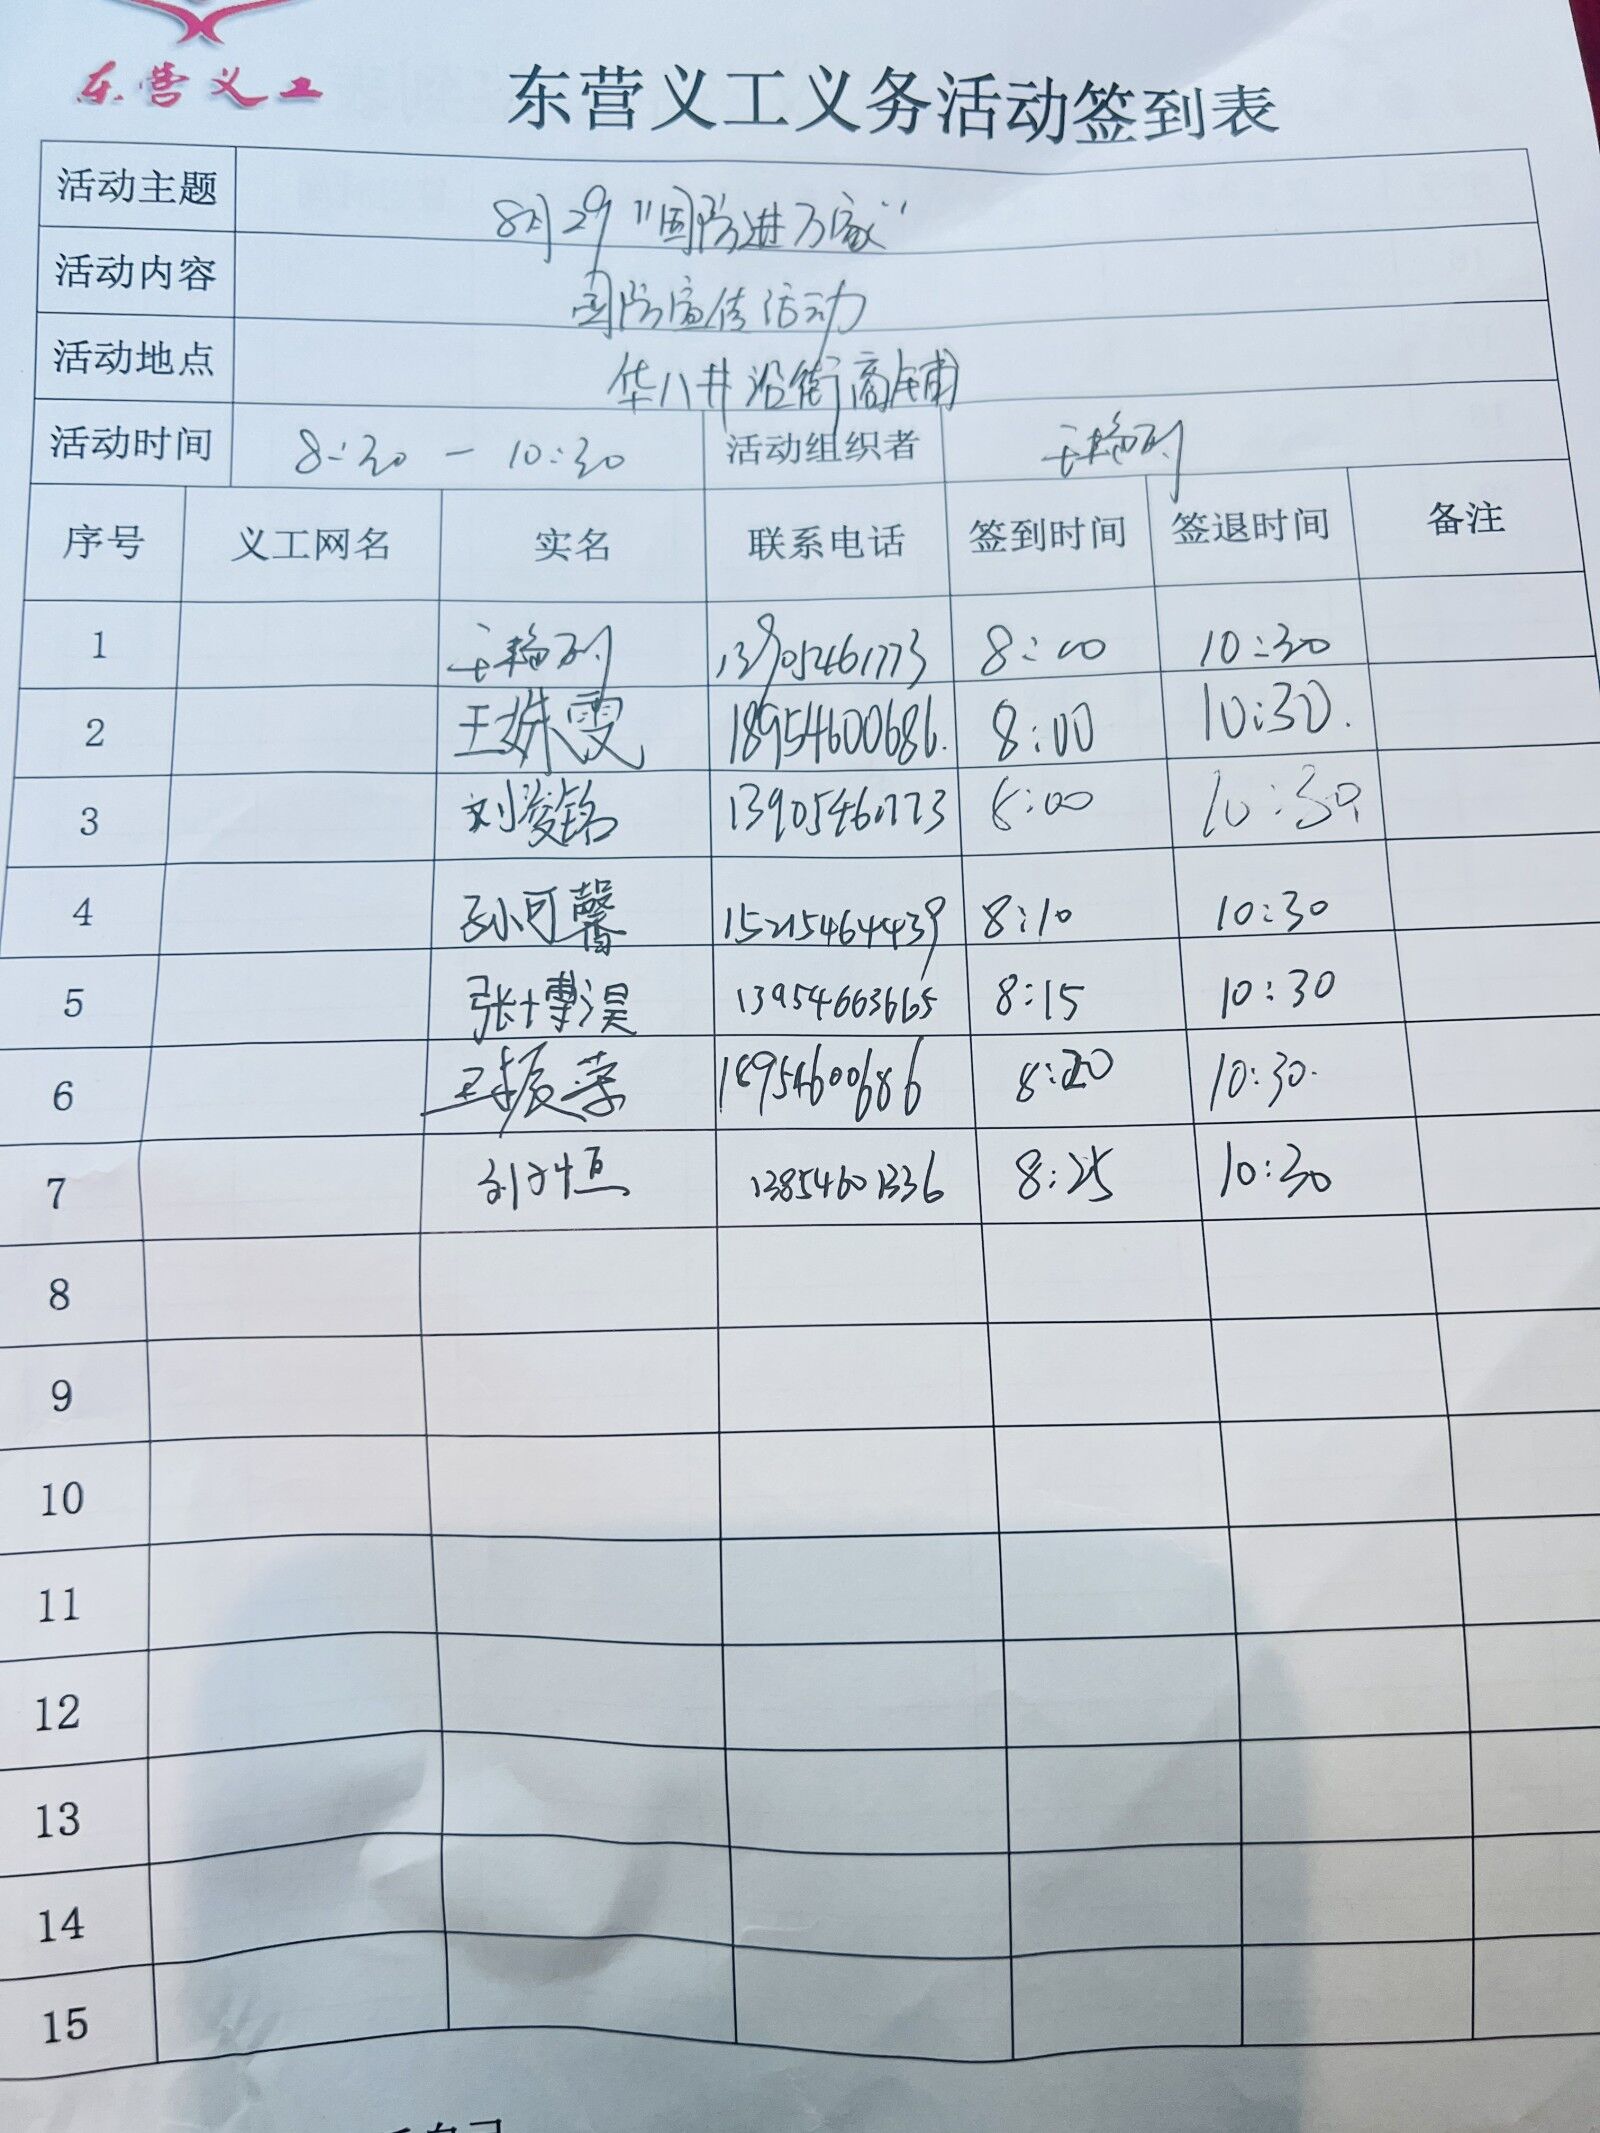 东营义工
东营义工义务活动签到表
活动主题 8月29"国防进万家"
活动内容 国防宣传活动
活动地点 华八井沿街商铺
活动时间 8:30 — 10:30 活动组织者
序号 义工网名 实名 联系电话 签到时间 签退时间 备注
1 13905461773 8:00 10:30
2 王姝雯 18954600686. 8:00 10:30.
3 刘凌铭 13905461773 8:00 10:30
4 孙可馨 15215464439 8:10 10:30
5 张博淏 13954663665 8:15 10:30
6 王振荣 18954600686 8:20 10:30.
7 刘子恒 13854601336 8:25 10:30
8
9
10
11
12
13
14
15